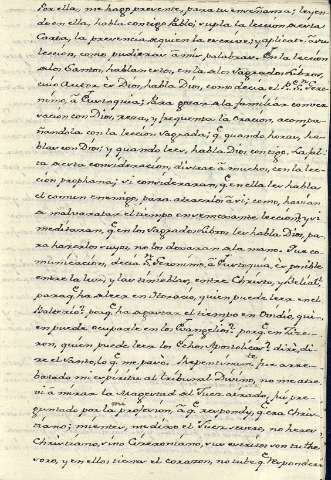 Por ella, me hago presente, para tu enseñanza; leyen
do en ella, habla contigo Pablo; supla la leccion de esta
Carta, la presencia de quien la escrive; y aplicate á su
leccion, como pudieras á mis palabras. En la leccion
de los Santos, hablan estos, en la de los Sagrados Libros,
Dios, habla Dios, como decia el P. S. Gero
nimo, á Eustoquia; Para gozar de la familiar conver
sacion con Dios, reza, y frequenta la oracion, acompa
ñandola con la leccion Sagrada; q. quando horas, ha
blas con Dios; y quando lees, habla Dios contigo. La fal
ta de esta consideracion, distrae á muchos, con la lec
cion prophana; si consideraran, q. en ella les habla
el comun enemigo, para atraerlos á si; como, havian
de malvaratar el tiempo en semejante leccion; y si
meditaran, q. en los Sagrados Libros les habla Dios, pa
ra hacerlos suyos, no los dexaran de la mano. Que co
municacion, decia S. Geronimo, á Eustoquia, es posible
entre la luz, y las tinieblas, entre Christo, y Belial;
para q. ha de leer en Horacio, quien puede leer en el
Psalterio? por q. ha de gastar el tiempo en Ovidio, qui
en puede ocuparle en los Evangelios? por q. en Cice
ron, quien puede leer los Echos Apostolicos? dire, di
ce el Santo, lo q. me pasó. Repentinam.te fue arre
batado mi espiritu al tribunal Divino, no me atre
vi á mirar la Magestad del Juez airado, fui pre
guntado por la profesion, á q. respondi, q. era Chris
tiano; mientes, me dixo el Juez severo, no heres
Christiano, sino Ciceroniano, sus escritos son tu the
soro, y en ellos tienes el corazon, no tube q. responder á